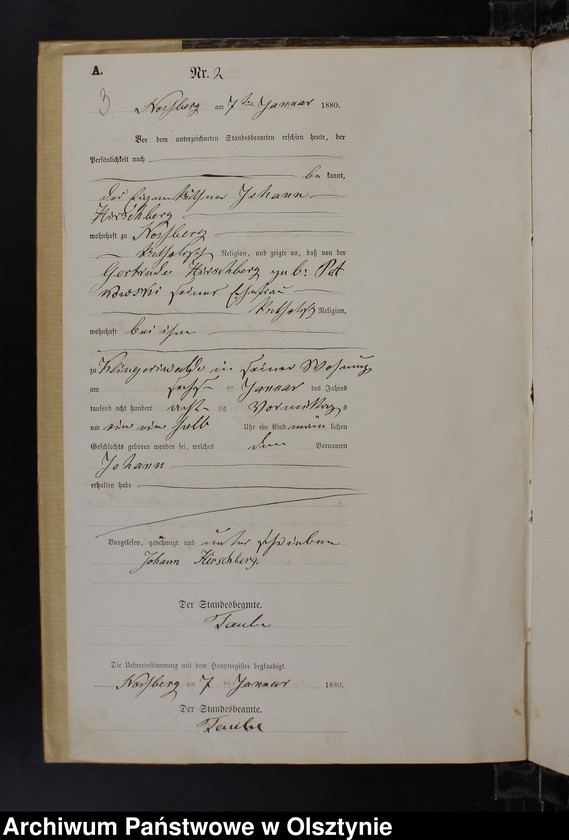 A. Nr. 2
3
Nossberg am 7ten Januar 1880.
Vor dem unterzeichneten Standesbeamten erschien heute, der
Persönlichkeit nach
be kannt,
der Eigenkäthner Johann
Hirschberg
wohnhaft zu Nossberg
katholisch Religion, und zeigte an, daß von der
Gertrude Hirschberg geb: Pat
kowski seiner Ehefrau
katholisch Religion,
wohnhaft bei ihm
zu Klingerswalde in seiner Wohnung
am sechs ten Januar des Jahres
tausend acht hundert acht zig Vormittags
um ein ein halb Uhr ein Kind männ lichen
Geschlechts geboren worden sei, welches den Vornamen
Johann
erhalten habe
Vorgelesen, genehmigt und unterschrieben
Johann Hirschberg.
Der Standesbeamte.
Taube
Die Uebereinstimmung mit dem Hauptregister beglaubigt.
Nossberg am 7 ten Januar 1880.
Der Standesbeamte.
Taube
Archiwum Państwowe w Olsztynie